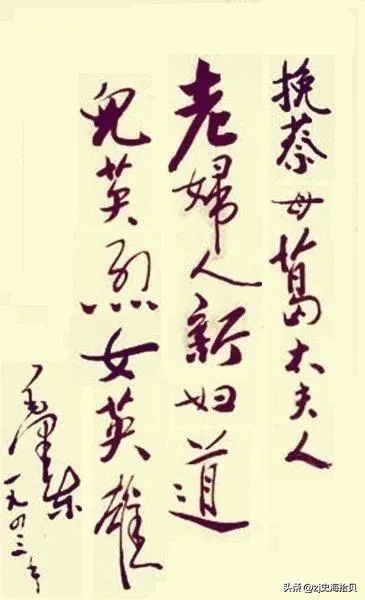 挽蔡母葛太夫人
老婦人新妇道
兒英烈女英雄
毛泽东
一九四三年
头条 @zj史海拾贝